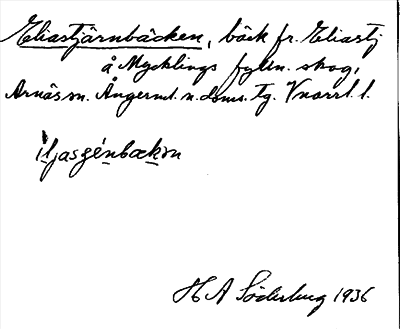 Eliastjärnbäcken, bäck fr. Eliastj
å Mycklings fylln. skog,
Arnäs sn. Ångerml. n. doms. Tg. Vnorrl. l.
iljasgénbækɔn
H A Söderberg 1936